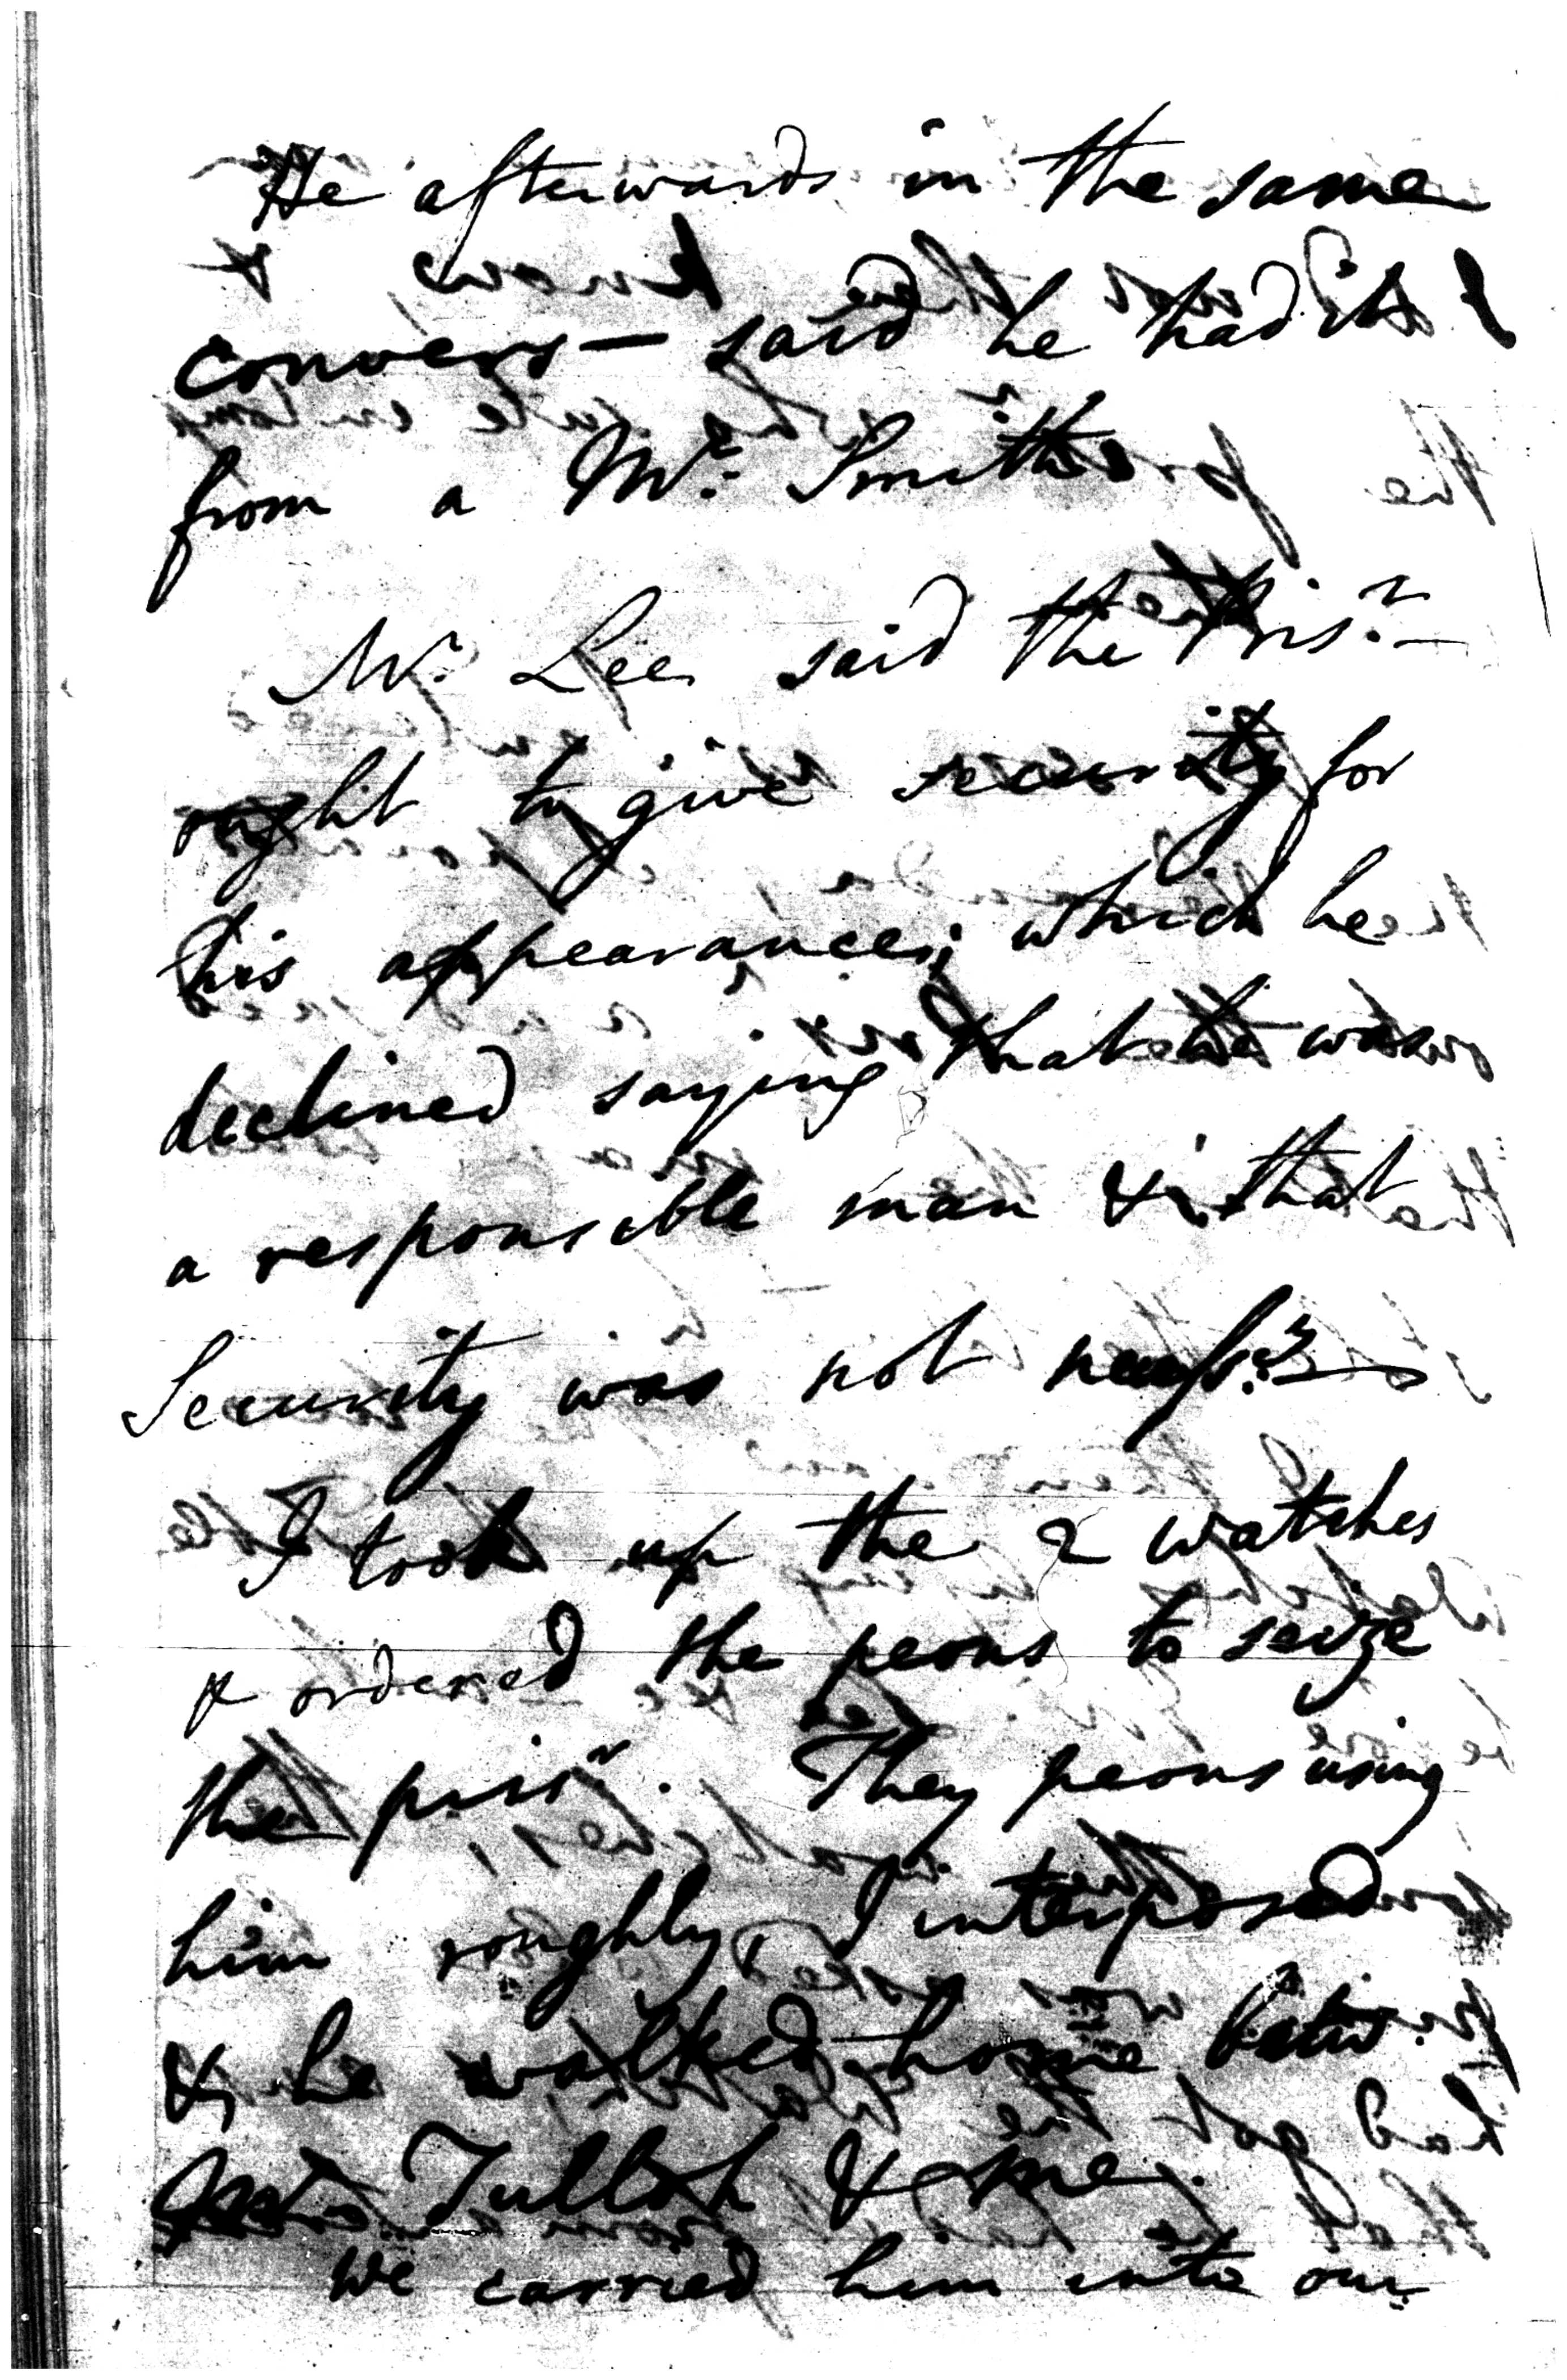 He afterwards in the same
convers— said he had it
from a Mr. Smith
Mr. Lee said the Prisr.—
ought to give security for
his appearance; which he
declined saying that he was
a responsible man & that
Security was not necessy.
I took up the 2 watches
& ordered the peons to seize
the prisr. They peons using
him roughly, I interposed
& he walked home betw.
Mr. Tulloh & me.
We carried him into our